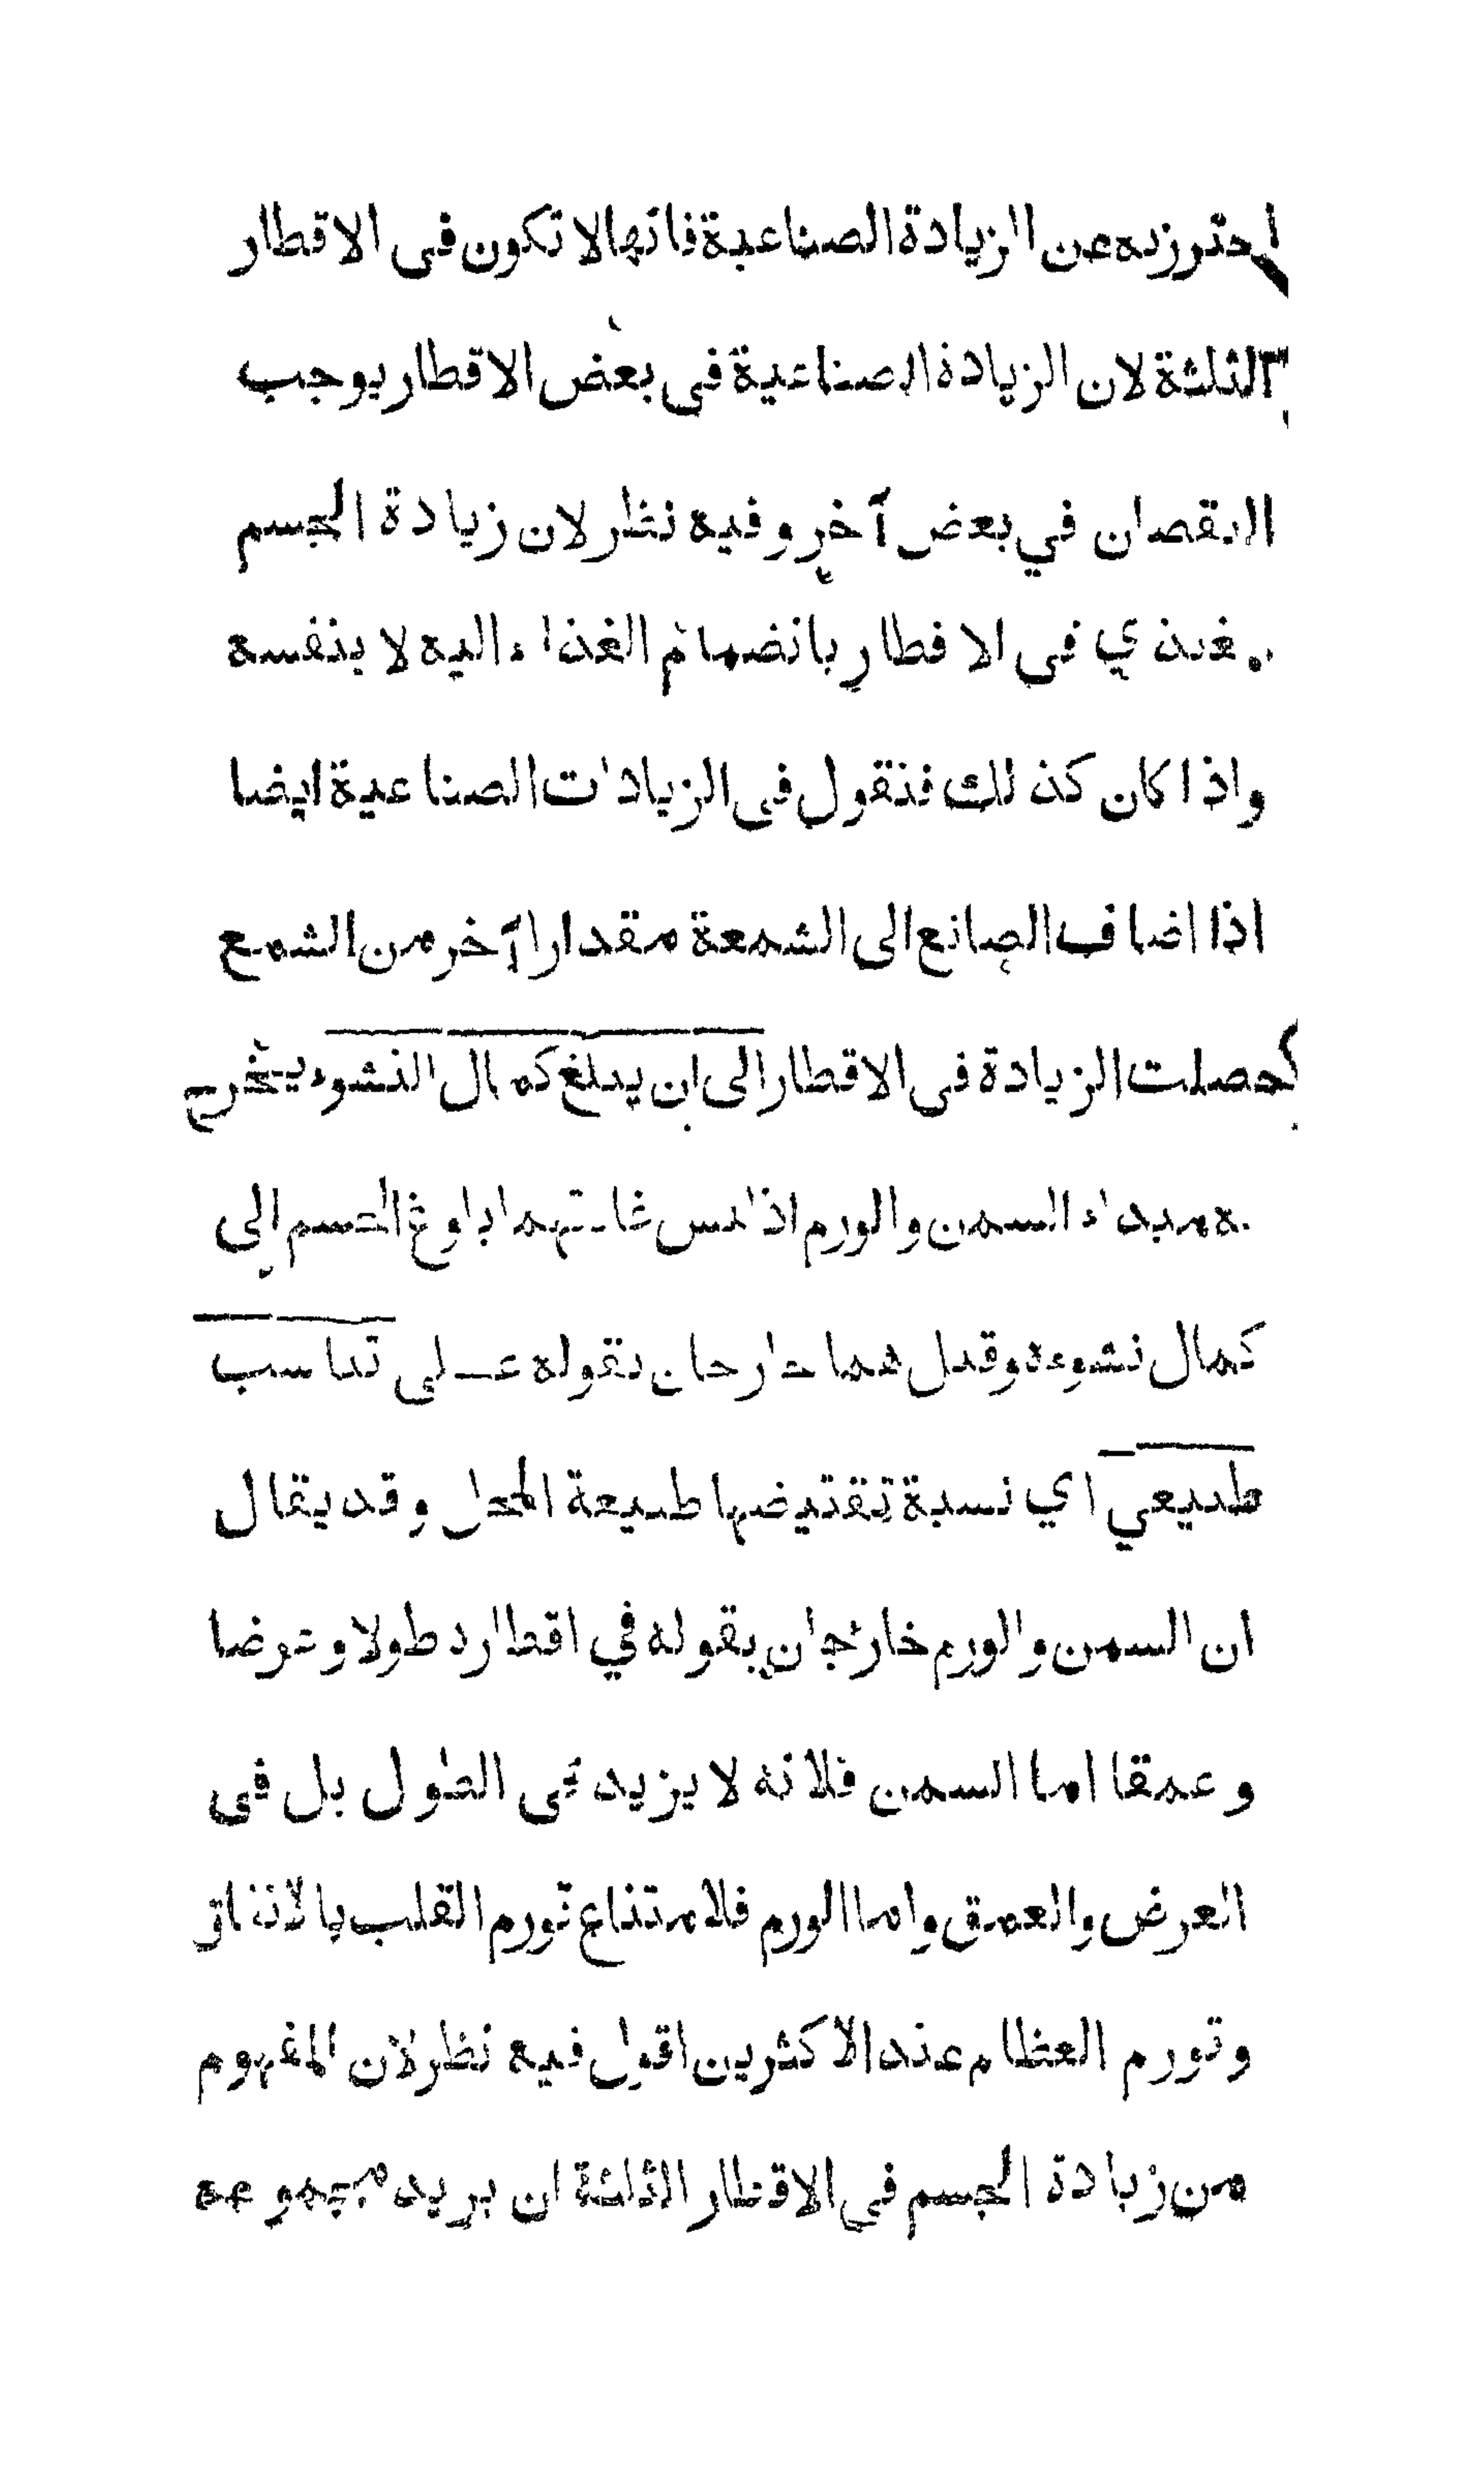 احترز به عن الزيادة الصناعية فانها لا تكون فى الاقطار
الثلثة لان الزيادة الصناعية فى بعض الاقطار يوجب
النقصان في بعض آخر وفيه نظر لان زيادة الجسم
المغتذي فى الاقطار بانضمام الغذاء اليه لا بنفسه
واذا كان كذلك فنقول فى الزيادات الصناعية ايضا
اذا اضاف الصانع الى الشمعة مقدارا آخر من الشمع
حصلت الزيادة فى الاقطار الى ان يبلغ كمال النشوء يخرج
به مبداء السمن والورم اذ ليس غايتهما بلوغ الجسم الى
كمال نشوءه وقيل هما خارجان بقوله على تناسب
طبيعي اي نسبة تقتضيها طبيعة المحل وقد يقال
ان السمن والورم خارجان بقوله في اقطاره طولا وعرضا
وعمقا اما السمن فلانه لا يزيد فى الطول بل فى
العرض والعمق واما الورم فلامتناع تورم القلب بالاتفاق
وتورم العظام عند الاكثرين اقول فيه نظر لان المفهوم
من زيادة الجسم فى الاقطار الثلثة ان يزيد مجموعه